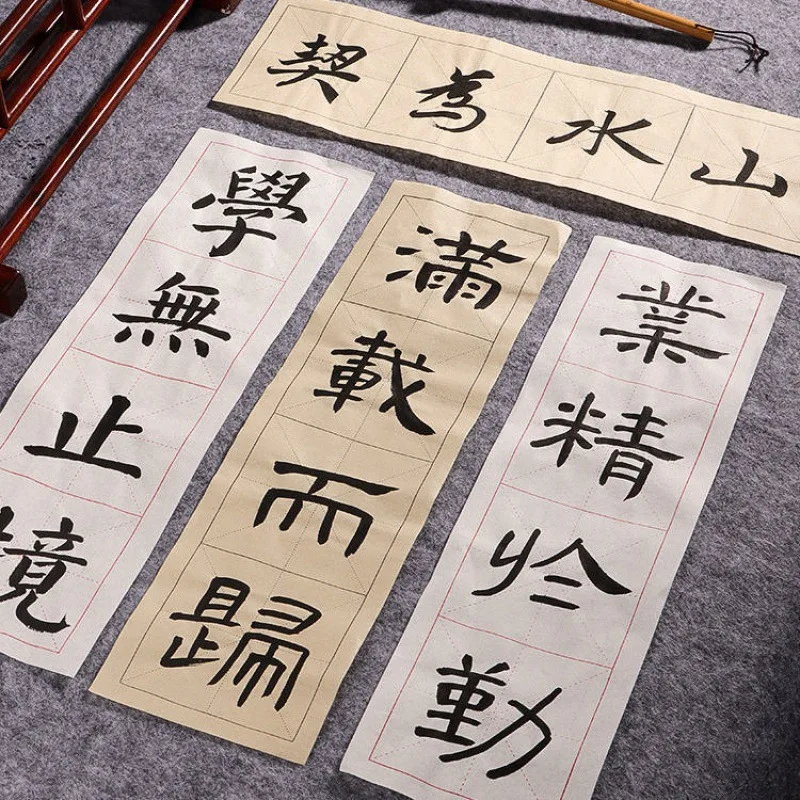 山水為契
業精於勤
滿載而歸
學無止境